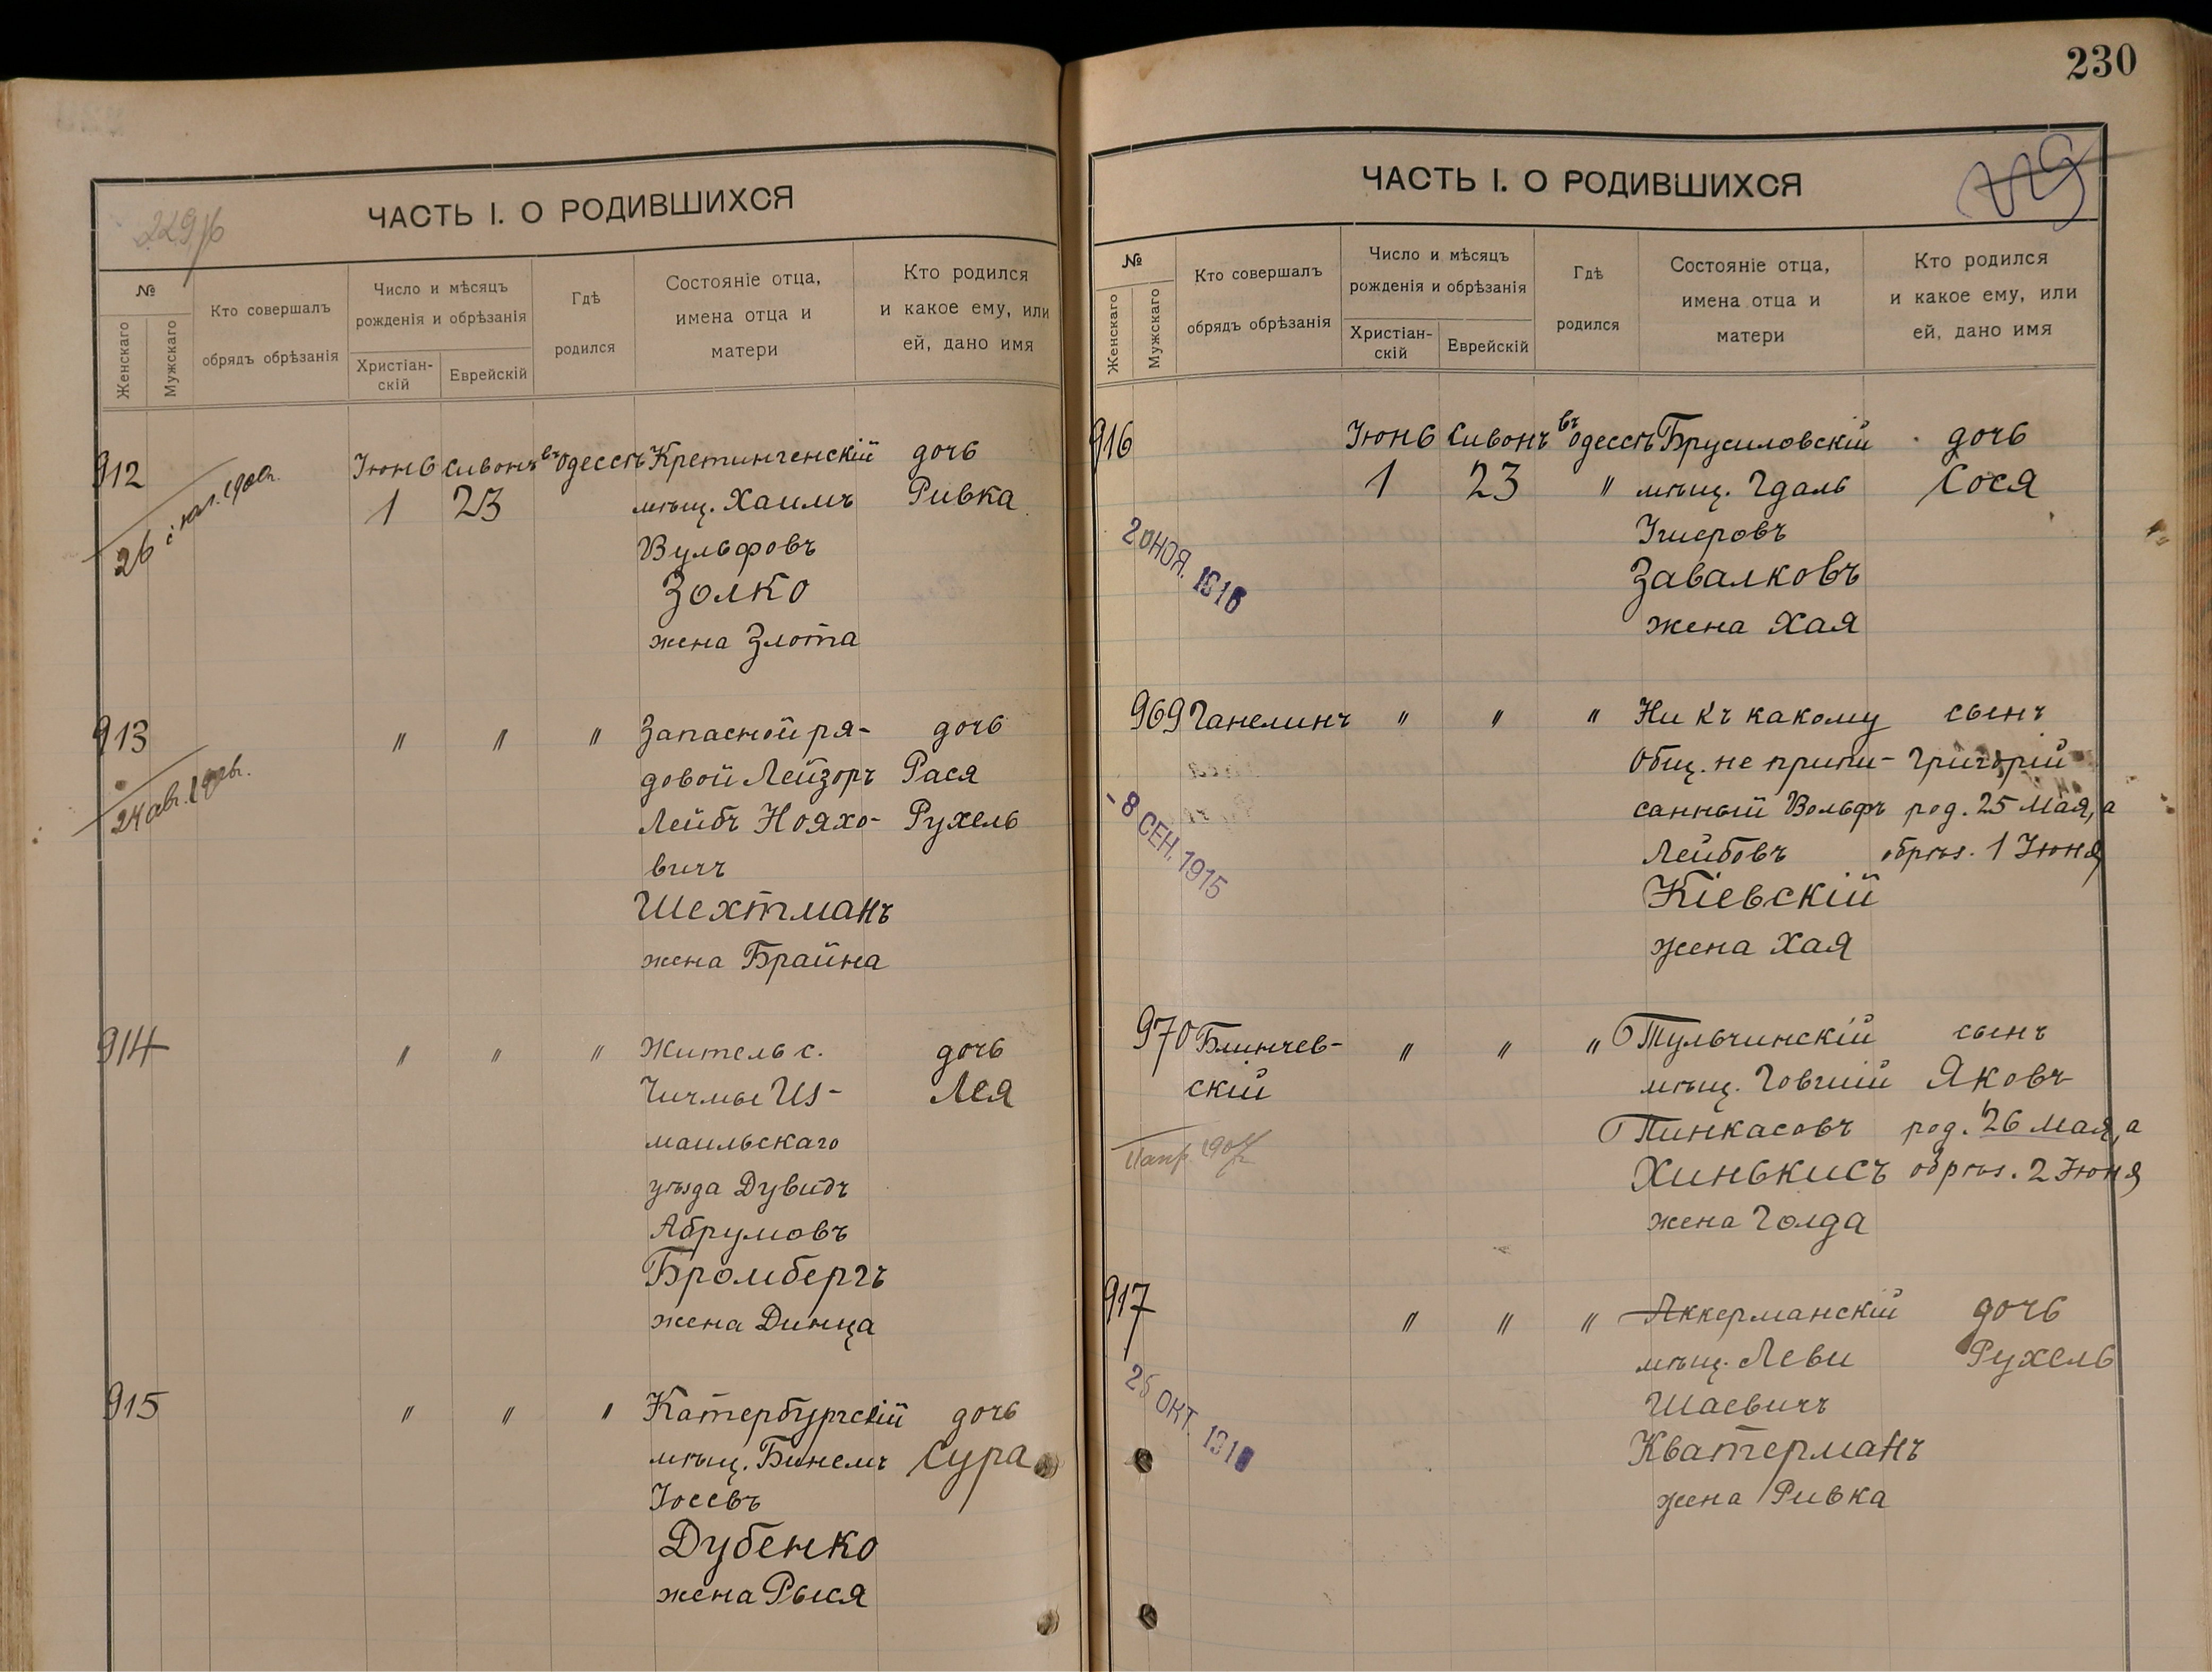 ЧАСТЬ I. О РОДИВШИХСЯ
№
Женскаго
Мужскаго
Кто совершалъ
обрядъ обрѣзанія
Число и мѣсяцъ
рожденія и обрѣзанія
Христіан-
скій
Еврейскій
Гдѣ
родился
Состояніе отца,
имена отца и
матери
Кто родился
и какое ему, или
ей, дано имя
912 Іюнь Сивонъ въ Одессѣ Кретингенскій дочь
1 23 мѣщ. Хаимъ Ривка
Вульфовъ
Золко
жена Злота
913 " " " Запасной ря- дочь
довой Лейзоръ Рася
Лейбъ Нояхо- Рухель
вичъ
Шехтманъ
жена Брайна
914 " " " Житель с. дочь
Чичмы Из- Лея
маильскаго
уѣзда Дувидъ
Абрумовъ
Бромбергъ
жена Динца
915 " " " Катербургскій дочь
мѣщ. Бинемъ Сура
Іосевъ
Дубенко
жена Рыся
230
ЧАСТЬ I. О РОДИВШИХСЯ
№
Женскаго
Мужскаго
Кто совершалъ
обрядъ обрѣзанія
Число и мѣсяцъ
рожденія и обрѣзанія
Христіан-
скій
Еврейскій
Гдѣ
родился
Состояніе отца,
имена отца и
матери
Кто родился
и какое ему, или
ей, дано имя
916 Іюнь Сивонъ въ Одессѣ Брусиловскій дочь
1 23 " мѣщ. Гдаль Сося
Ушеровъ
Завалковъ
жена Хая
НОЯ.
969 Ганелинъ " " " Ни къ какому сынъ
Общ. не припи- Григорій
санный Вольфъ род. 25 Мая, а
Лейбовъ обрѣз. 1 Іюня
Кіевскій
жена Хая
- 8 СЕН. 1915
970 Блинчев- " " " Тульчинскій сынъ
скій мѣщ. Говшій Яковъ
Пинкасовъ род. 26 мая, а
Хинькисъ обрѣз. 2 Іюня
жена Голда
917 " " " Аккерманскій дочь
мѣщ. Леви Рухель
Шаевичъ
Кватерманъ
жена Ривка
ОКТ.